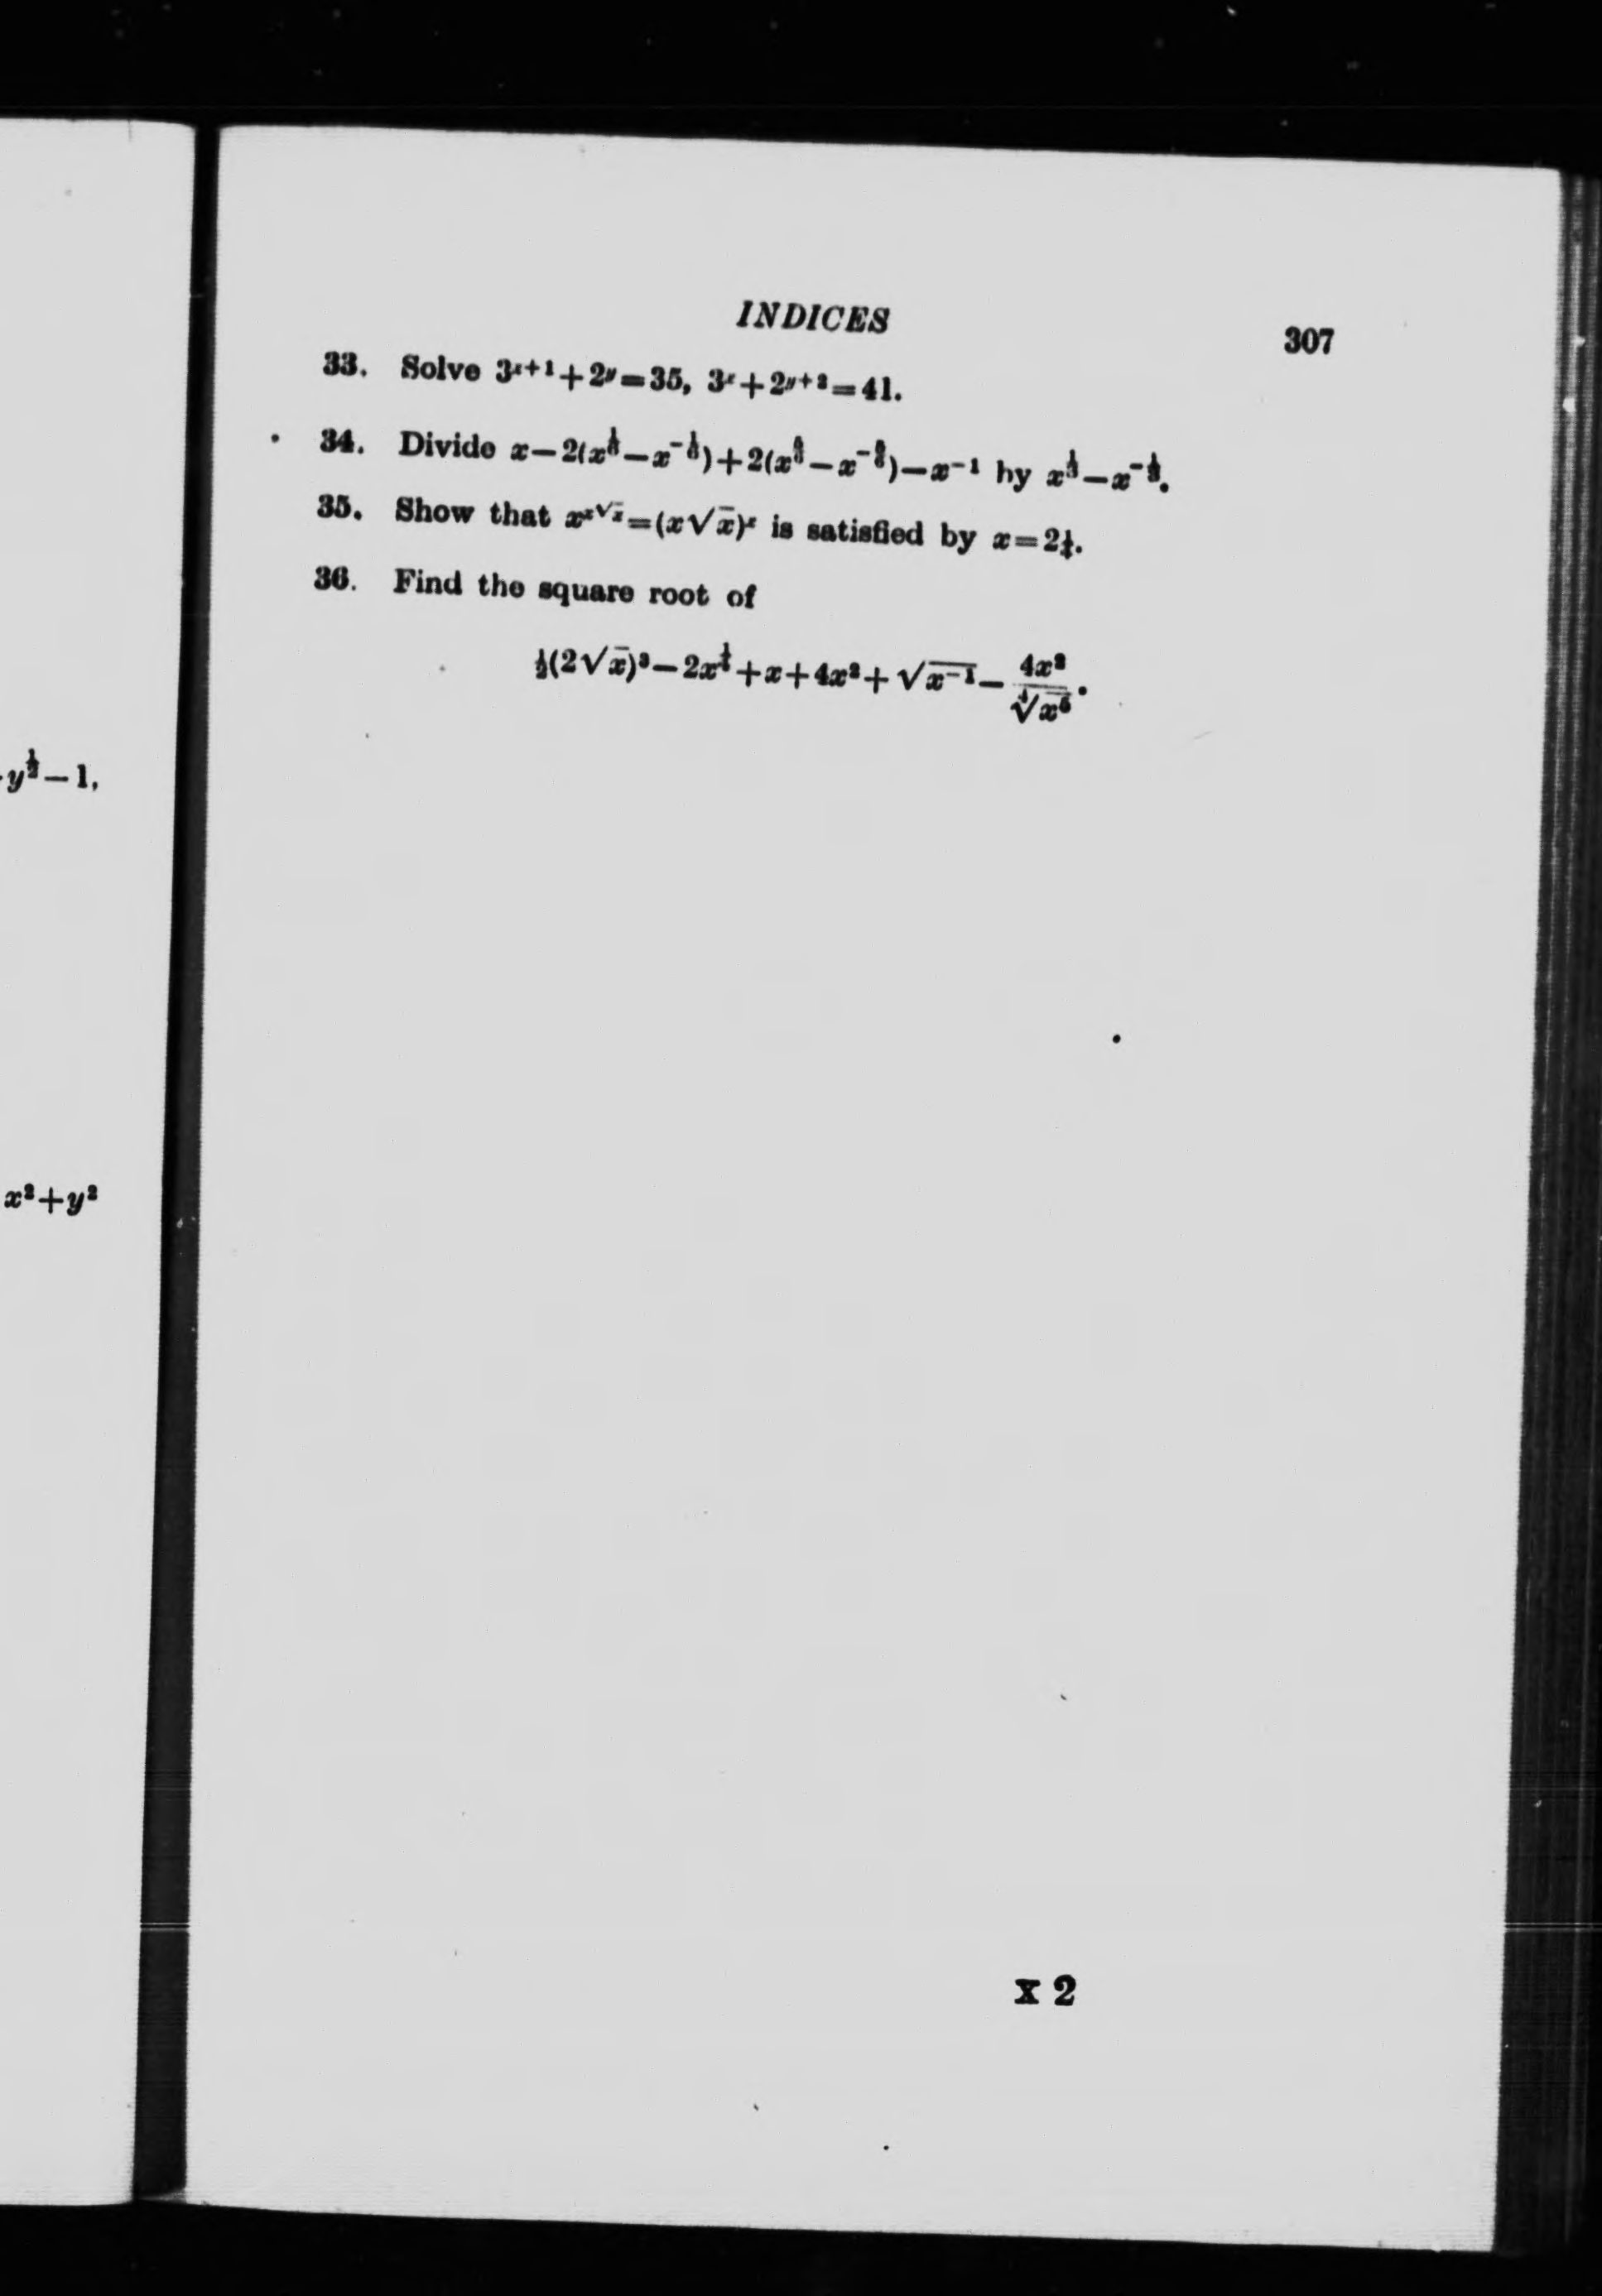 y^½ − 1,
x² + y²
INDICES
307
33. Solve 3^(x+1) + 2^y = 35, 3^x + 2^(y+2) = 41.
34. Divide x − 2(x^⅙ − x^(−⅙)) + 2(x^⅚ − x^(−⅚)) − x^(−1) by x^⅓ − x^(−⅓).
35. Show that x^(x√x) = (x√x)^x is satisfied by x = 2¼.
36. Find the square root of
½(2√x)³ − 2x^¼ + x + 4x² + √(x^(−1)) − 4x²/⁴√(x⁵).
X 2